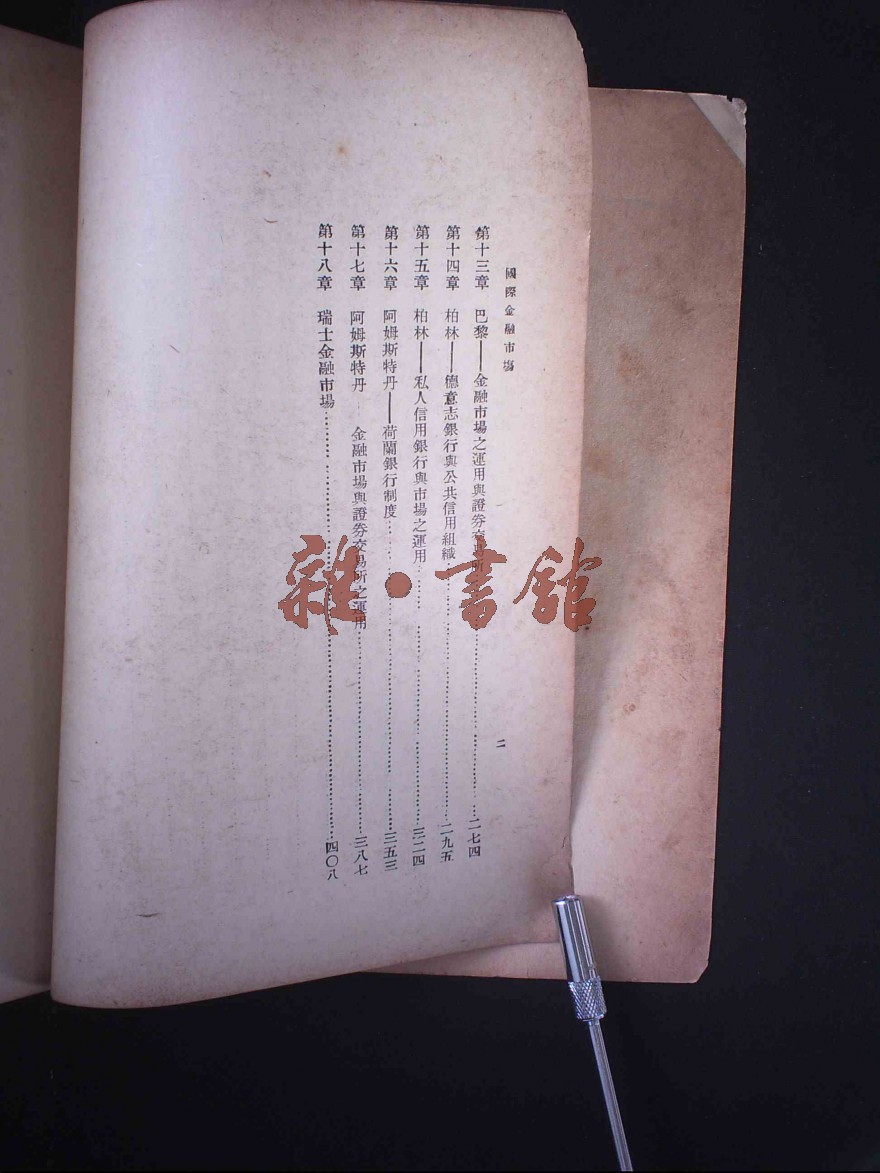 國際金融市場
二
第十三章 巴黎——金融市場之運用與證券交易所……二七四
第十四章 柏林——德意志銀行與公共信用組織……二九五
第十五章 柏林——私人信用銀行與市場之運用……三二四
第十六章 阿姆斯特丹——荷蘭銀行制度……三五三
第十七章 阿姆斯特丹 金融市場與證券交易所之運用……三八七
第十八章 瑞士金融市場……四〇八
雜·書館